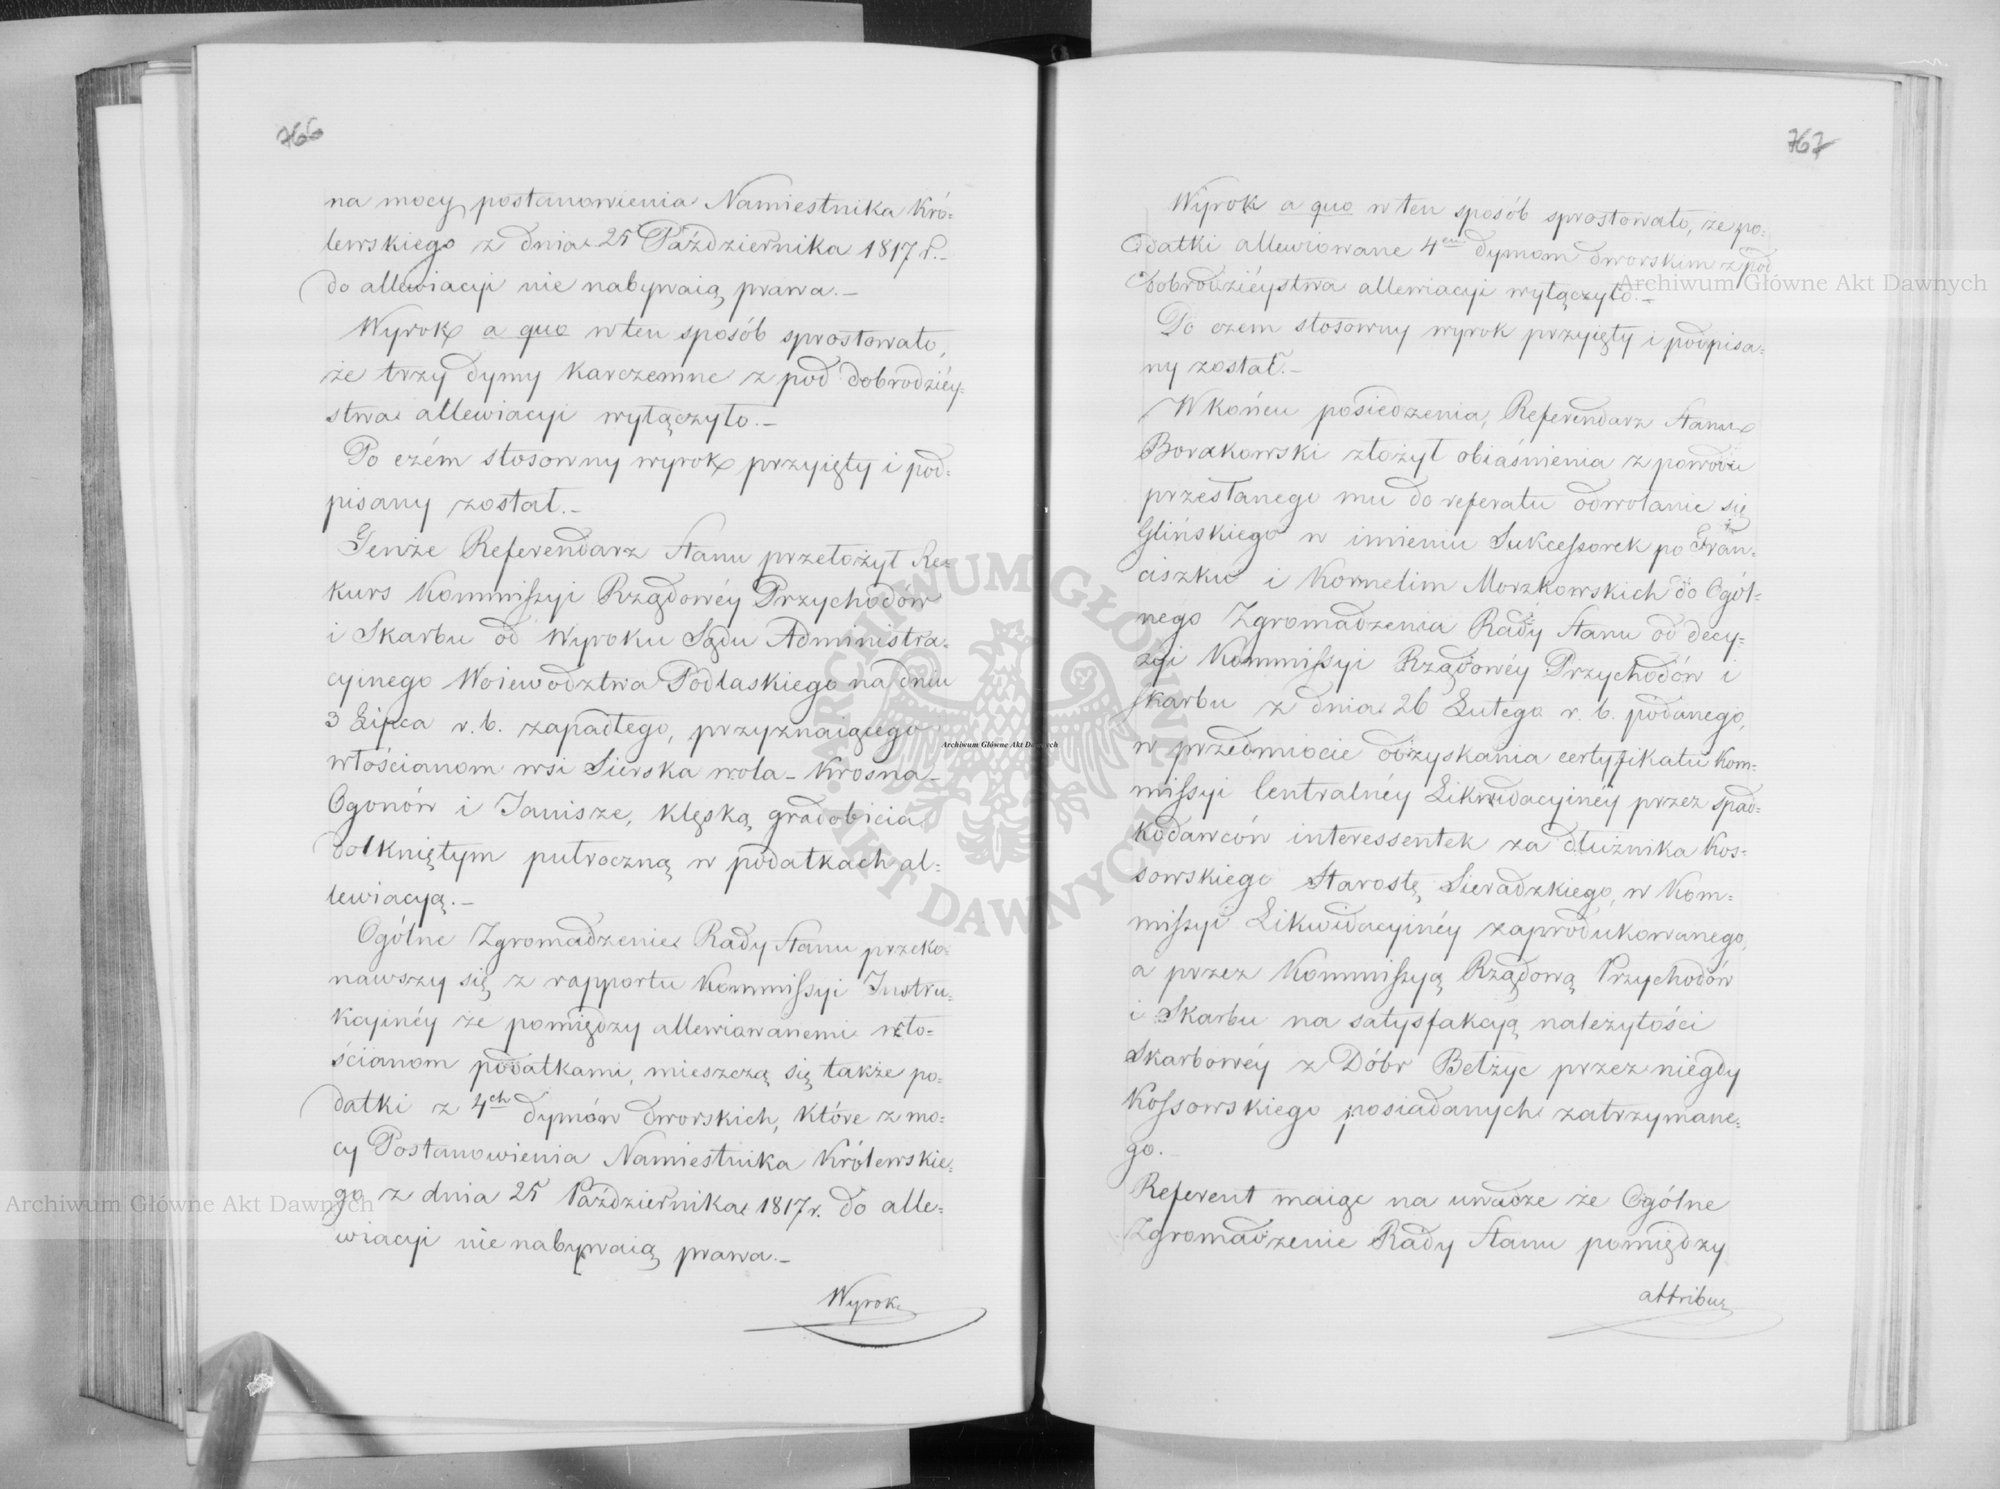 766
na mocy postanowienia Namiestnika Kró=
lewskiego z dnia 25 Października 1817 r.—
do allewiacyi nie nabywaią prawa.—
Wyrok a quo w ten sposób sprostowało,
że trzy dymy karczemne z pod dobrodziéy=
stwa allewiacyi wyłączyło.—
Po czém stosowny wyrok przyięty i pod=
pisany został.—
Tenże Referendarz Stanu przełożył Re=
kurs Kommissyi Rządowéy Przychodów
i Skarbu od Wyroku Sądu Administra=
cyinego Woiewództwa Podlaskiego na dniu
3 Lipca r. b. zapadłego, przyznaiącego
włościanom wsi Sierska wola - Krosna -
Ogonów i Janisze, klęską gradobicia
dotkniętym pułroczną w podatkach al=
lewiacyą.—
Ogólne Zgromadzenie Rady Stanu przeko=
nawszy się z rapportu Kommissyi Instru=
kcyinéy że pomiędzy allewiawanemi wło=
ścianom podatkami, mieszczą się także po=
datki z 4ch dymów dworskich, które z mo=
cy Postanowienia Namiestnika Królewskie=
go z dnia 25 Października 1817 r. do alle=
wiacyi nie nabywaią prawa.—
Wyrok
767
Wyrok a quo w ten sposób sprostowało, że po=
datki allewiowane 4em dymom dworskim z pod
dobrodziéystwa allewiacyi wyłączyło.—
Po czem stosowny wyrok przyięty i podpisa=
ny został.—
W końcu posiedzenia, Referendarz Stanu
Borakowski złożył obiaśnienia z powodu
przesłanego mu do referatu odwołanie się
Glińskiego w imieniu Sukcessorek po Fran=
ciszku i Kornelim Morzkowskich do Ogól=
nego Zgromadzenia Rady Stanu od decy=
zyi Kommissyi Rządowéy Przychodów i
Skarbu z dnia 26 Lutego r. b. podanego,
w przedmiocie odzyskania certyfikatu Kom=
missyi Centralnéy Likwidacyinéy przez spad=
kodawców interessentek za dłużnika Kos=
sowskiego Starostę Sieradzkiego, w Kom=
missyi Likwidacyinéy zaprodukowanego,
a przez Kommissyą Rządową Przychodów
i Skarbu na satysfakcyą należytości
Skarbowéy z Dóbr Bełżyc przez niegdy
Kossowskiego posiadanych zatrzymane=
go.—
Referent maiąc na uwadze że Ogólne
Zgromadzenie Rady Stanu pomiędzy
attribu=
Archiwum Główne Akt Dawnych
Archiwum Główne Akt Dawnych
Archiwum Główne Akt Dawnych
ARCHIWUM GŁÓWNE AKT DAWNYCH